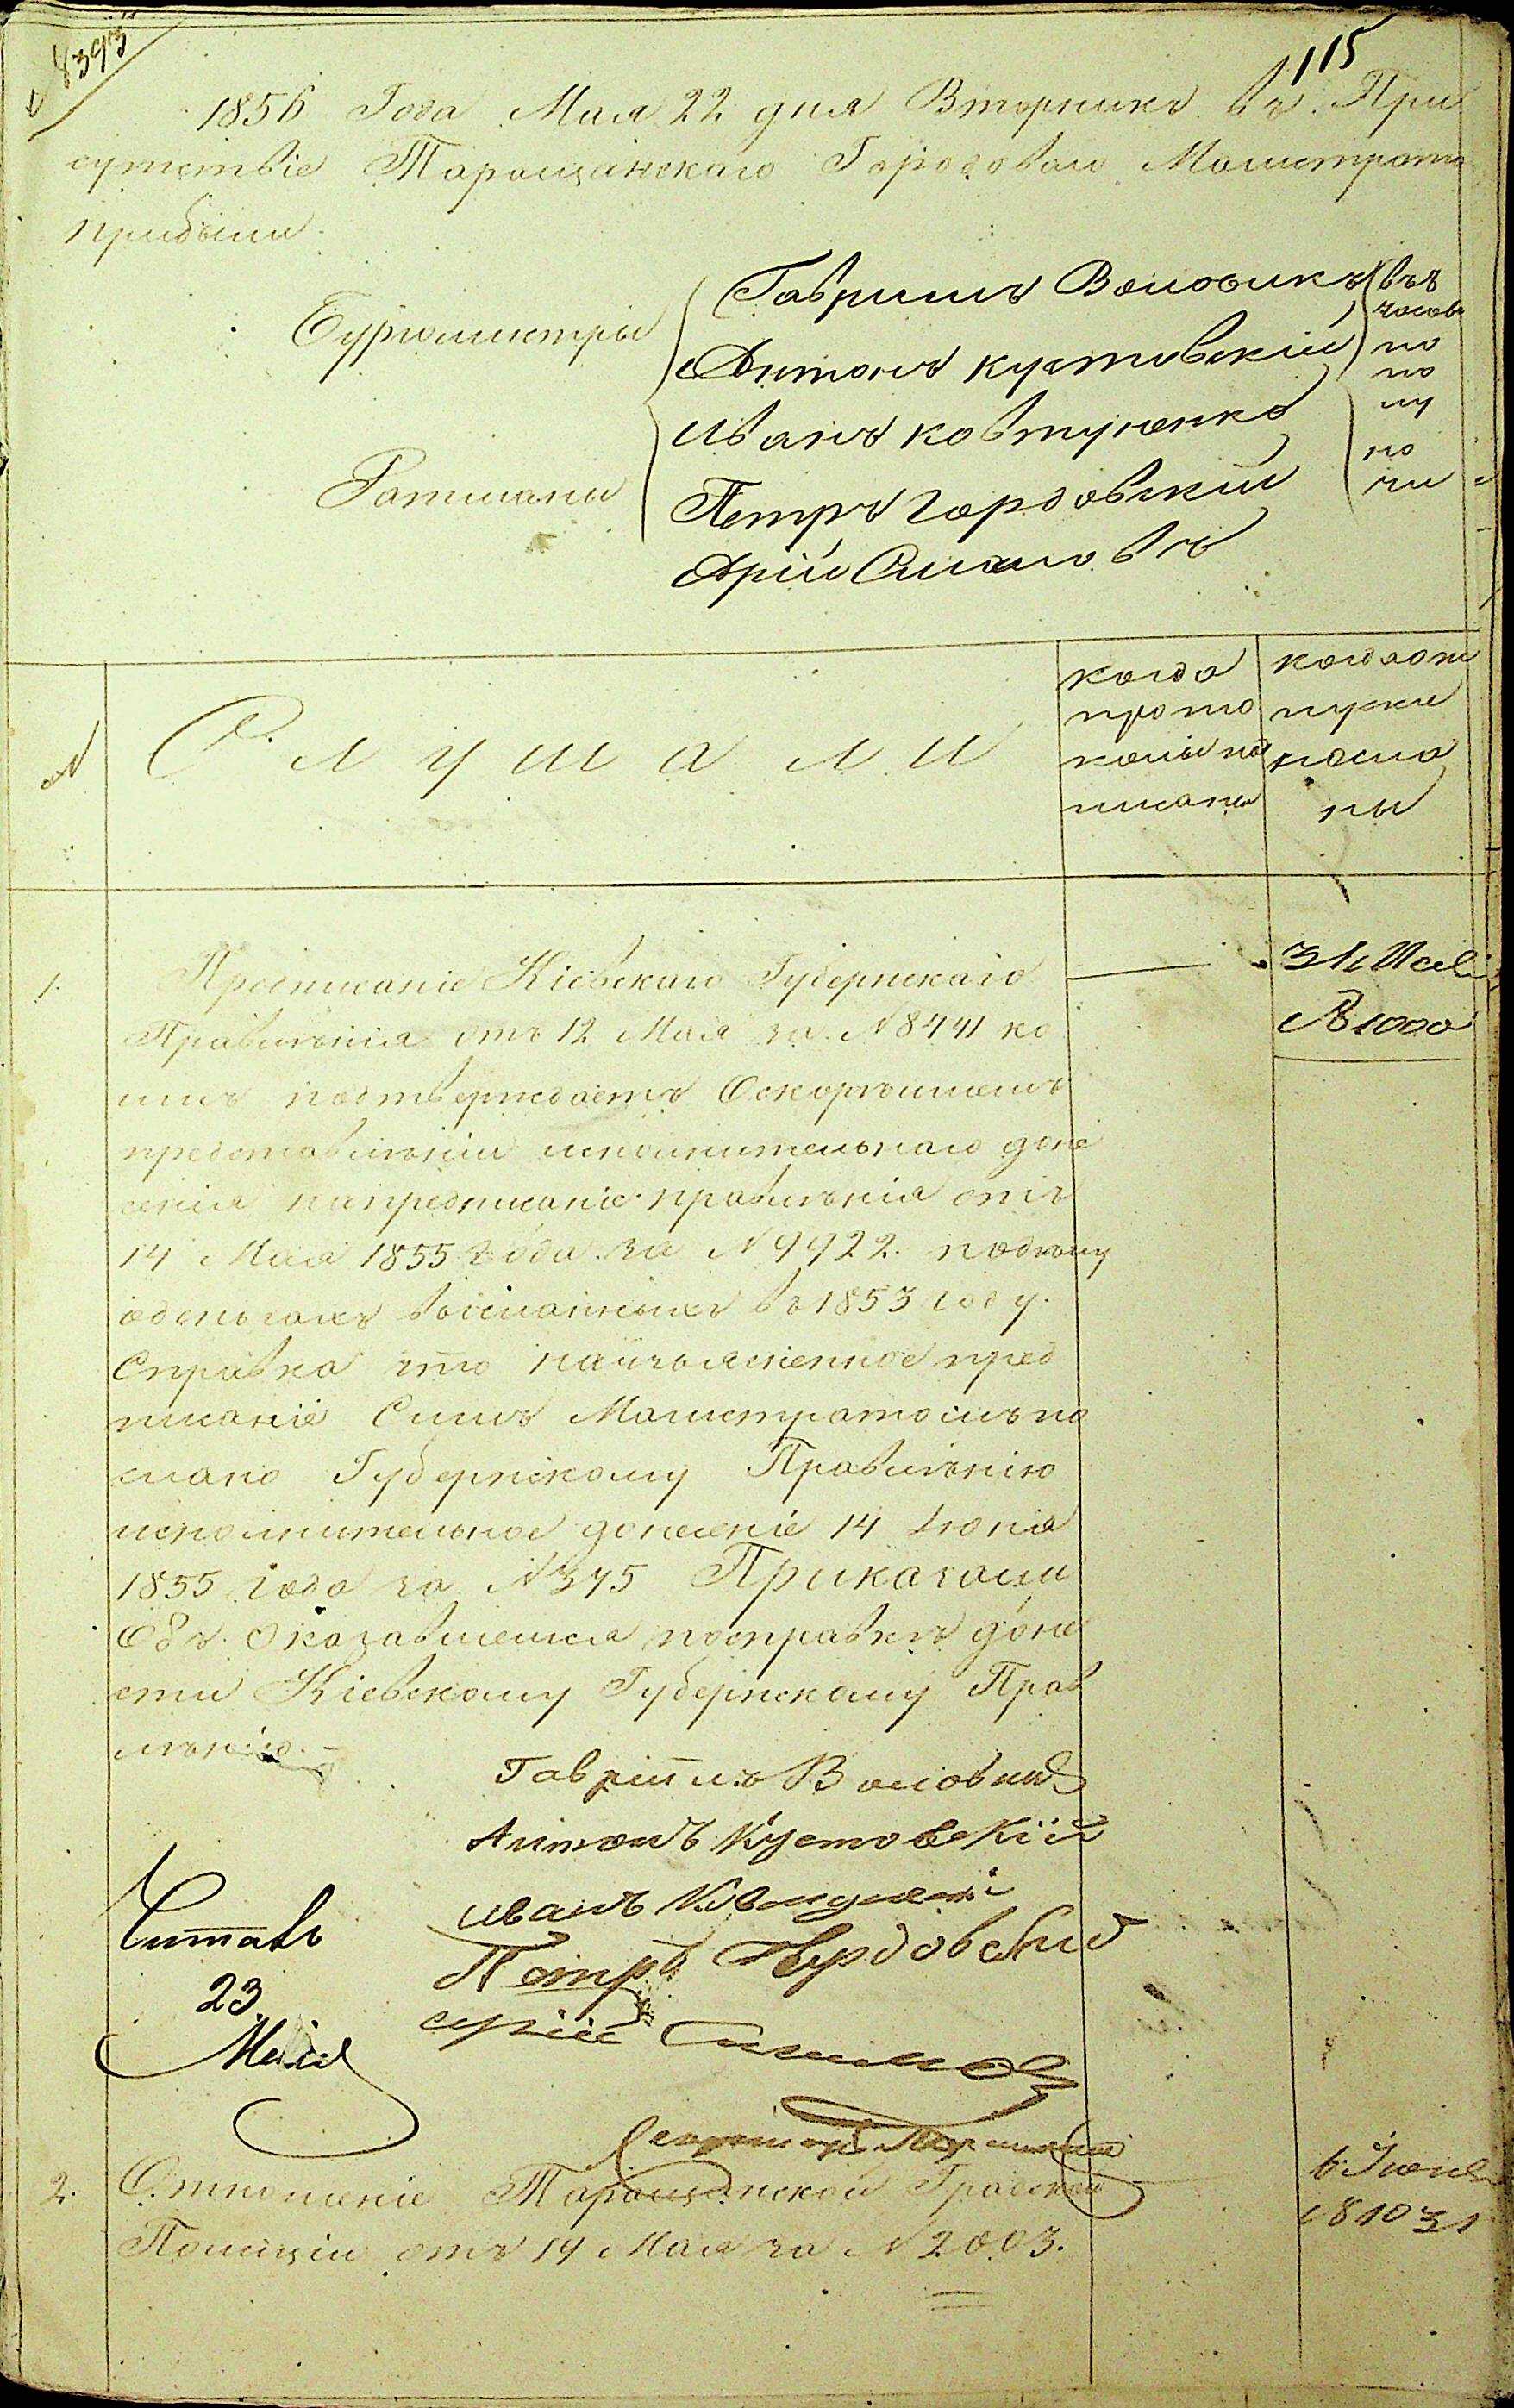 8393
115
1856 Года Мая 22 дня Вторникъ въ При
сутствіе Таращанскаго Городоваго Магистрата
прибыли
Бургомистры
Гавриилъ Воловикъ
Антонъ Кустовскій
Ратманы
Иванъ Ковтуненко
Петръ Гордовскій
Арій Смиловъ
въ 8
часовъ
по
по
лу
но
чи
№
Слушали
когда
прото
колы по
писаны
когда от
пуски
посла
ны
1.
Предписаніе Кіевскаго Губернскаго
Правленія отъ 12 Мая за №8441 ко
имъ подтверждаетъ Оскорѣйшемъ
представленіи исполнительнаго доне
сенія на предписаніе правленія отъ
14 Мая 1855 года за №9922.подѣлу
оденьгахъ высланныхъ въ 1853 году.
Справка что наизъясненное пред
писаніе Симъ Магистратомъ по
слано Губернскому Правленію
исполнительное донесеніе 14 Іюня
1855 года за №375 Приказали
Объ оказавшемся посправкѣ доне
сти Кіевскому Губернскому Прав
лѣнію.
31 Мая
№1000
Гавріилъ Воловикъ
Антонъ Кустовскій
Иванъ
Петръ Гордовскій
Арій
Секретарь
Читалъ
23
Мая
2.
Отношеніе Таращанской Градской
Полиціи отъ 14 Мая за №2003.
6 Іюня
№1031